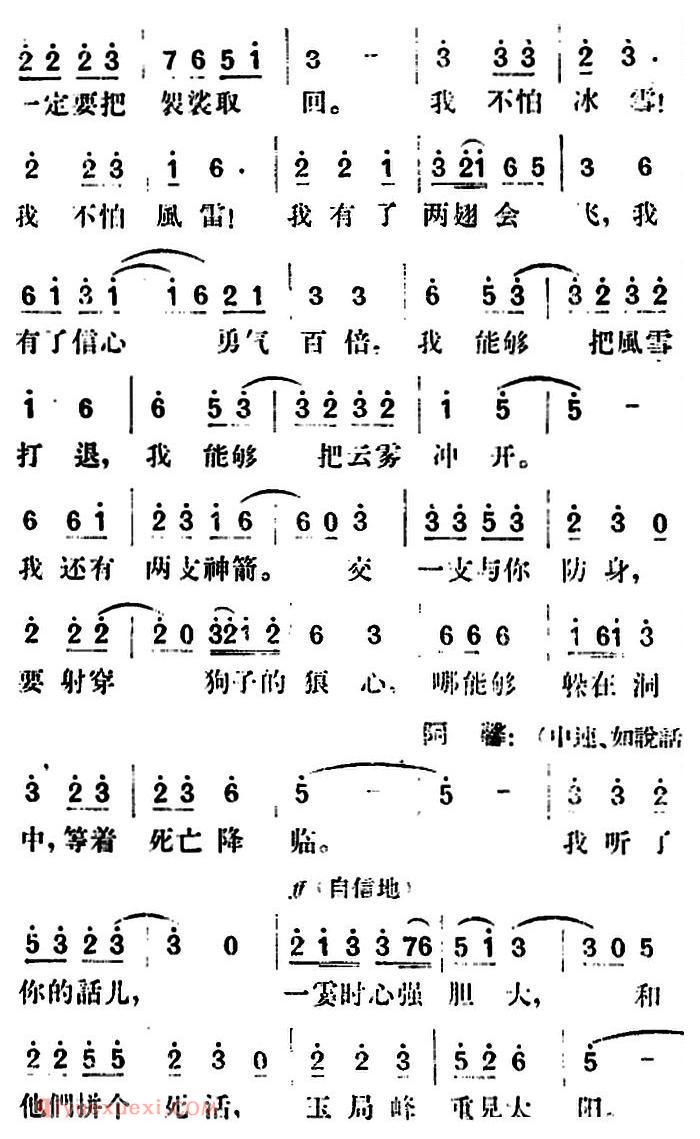 2 2 2 3 | 7 6 5 1 | 3 - | 3 3 3 | 2 3 .
一定要把 袈裟取 回。 我 不怕 冰 雪!
2 2 3 | 1 6 . | 2 2 1 | 3 2 1 6 5 | 3 6
我 不怕 風雷! 我有了 两翅会 飞, 我
6 1 3 1 | 1 6 2 1 | 3 3 | 6 5 3 | 3 2 3 2
有了信心 勇气 百倍, 我 能够 把風雪
1 6 | 6 5 3 | 3 2 3 2 | 1 5 | 5 -
打退, 我 能够 把云雾 冲 开。
6 6 1 | 2 3 1 6 | 6 0 3 | 3 3 5 3 | 2 3 0
我还有 两支神箭。 交 一支与你 防身,
2 2 2 | 2 0 3 2 1 2 | 6 3 | 6 6 6 | 1 6 1 3
要射穿 狗子的狼 心, 哪能够 躲在洞
阿 : (中速、如說話
3 2 3 | 2 3 6 | 5 - | 5 - | 3 3 2
中, 等着 死亡降 临。 我听了
ff (自信地)
5 3 2 3 | 3 0 | 2 1 3 3 7 6 | 5 1 3 | 3 0 5
你的話儿, 一霎时心强 胆 大, 和
2 2 5 5 | 2 3 0 | 2 2 3 | 5 2 6 | 5 -
他們拼个 死活, 玉局峰 重見太 阳。